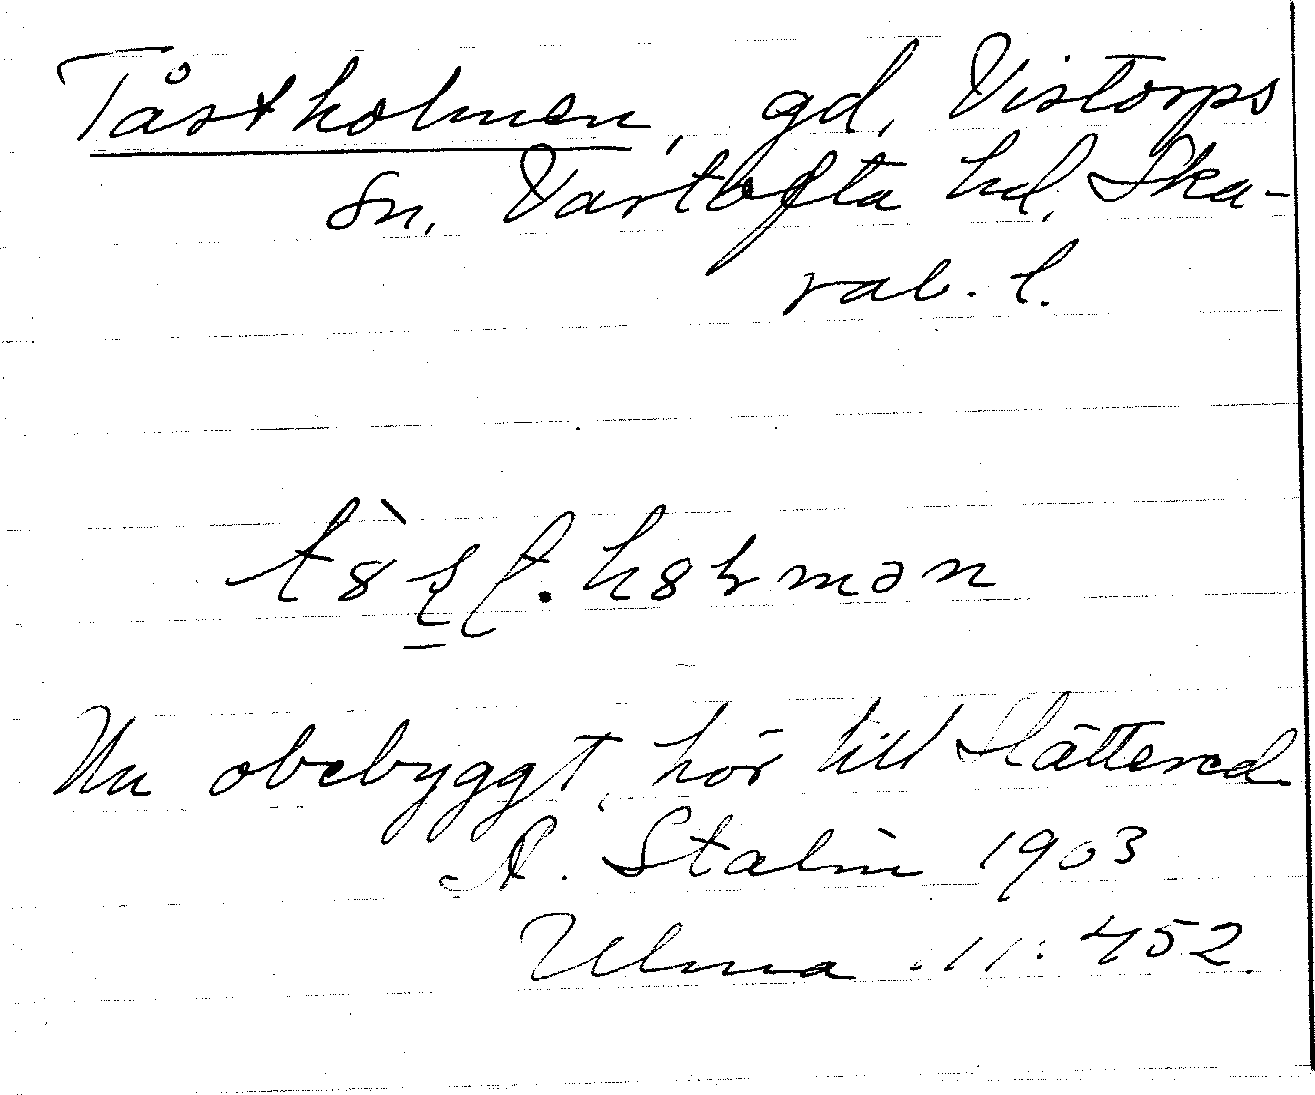 Tåstholmen, gd, Vistorps
sn. Vartofta hd, Ska-
rab. l.
Nu obebyggt, hör till Slättered
A. Stalin 1903
Ulma 11:452.